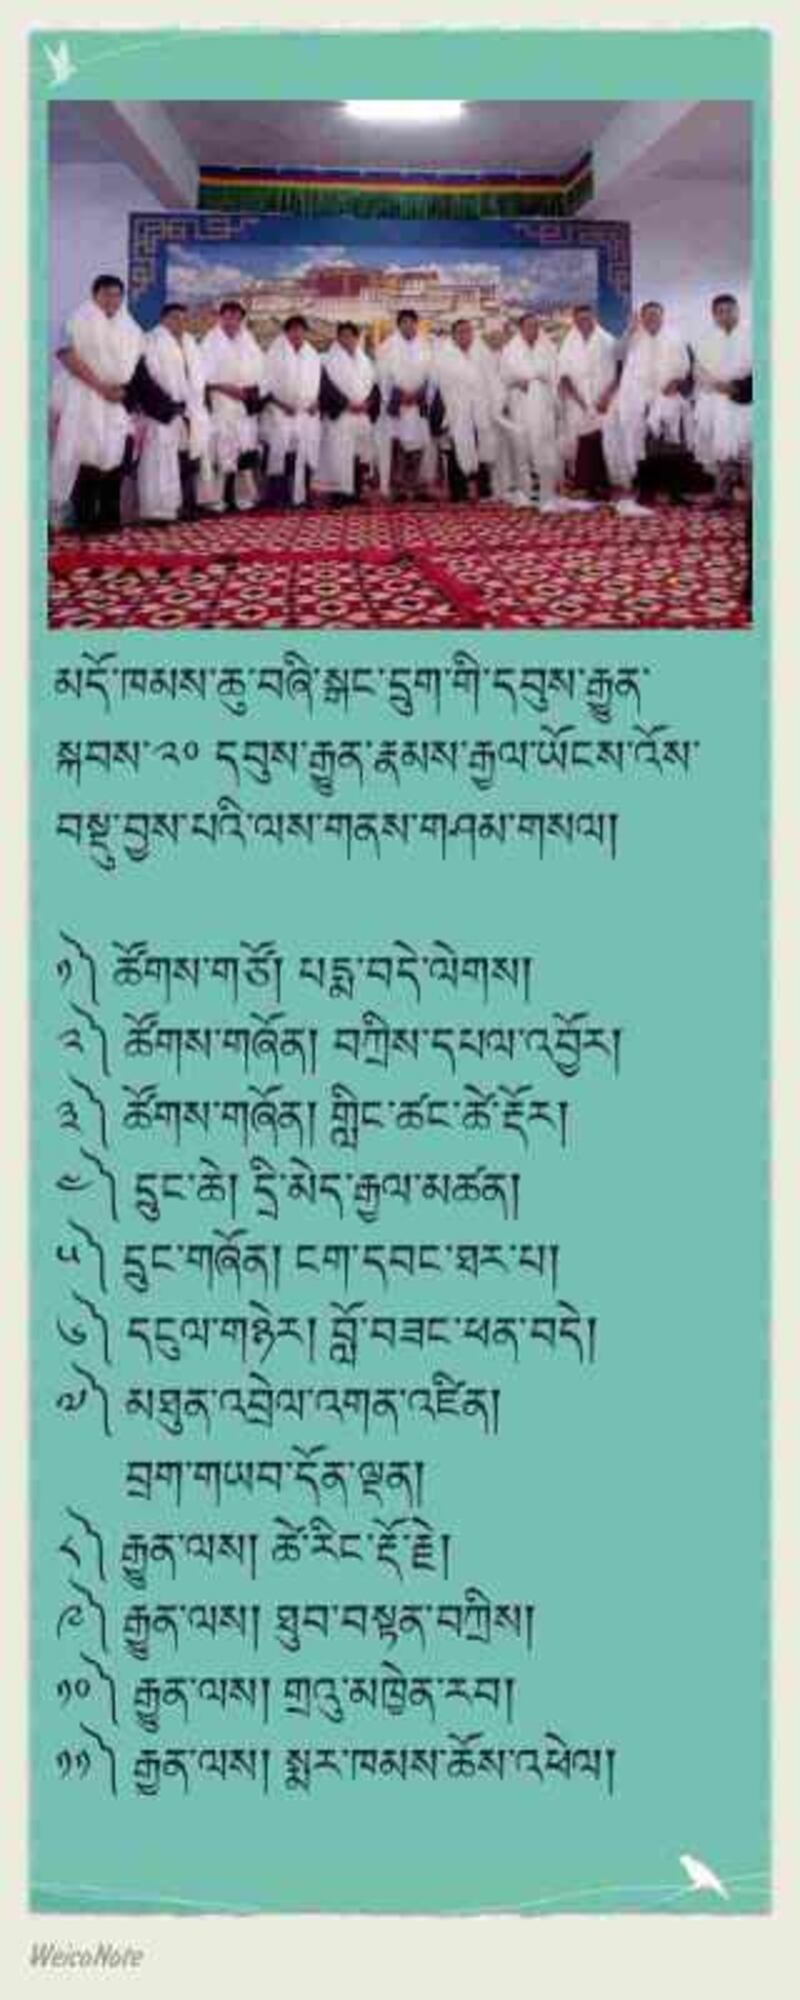 མདོ་ཁམས་ཆུ་བཞི་སྒང་དྲུག་གི་དབུས་རྒྱུན་
སྐབས་༢༠ དབུས་རྒྱུན་རྣམས་རྒྱལ་ཡོངས་འོས་
བསྡུ་བྱས་པའི་ལས་གནས་གཤམ་གསལ།
༡༽ ཚོགས་གཙོ། པདྨ་བདེ་ལེགས།
༢༽ ཚོགས་གཞོན། བཀྲིས་དཔལ་འབྱོར།
༣༽ ཚོགས་གཞོན། གླིང་ཚང་ཚེ་རྡོར།
༤༽ དྲུང་ཆེ། དྲི་མེད་རྒྱལ་མཚན།
༥༽ དྲུང་གཞོན། ངག་དབང་ཐར་པ།
༦༽ དངུལ་གཉེར། བློ་བཟང་ཕན་བདེ།
༧༽ མཐུན་འབྲེལ་འགན་འཛིན།
བྲག་གཡབ་དོན་ལྡན།
༨༽ རྒྱུན་ལས། ཚེ་རིང་རྡོ་རྗེ།
༩༽ རྒྱུན་ལས། ཐུབ་བསྟན་བཀྲིས།
༡༠༽ རྒྱུན་ལས། གྲའུ་མཁྱེན་རབ།
༡༡༽ རྒྱན་ལས། སྨར་ཁམས་ཆོས་འཕེལ།
WeicoNote